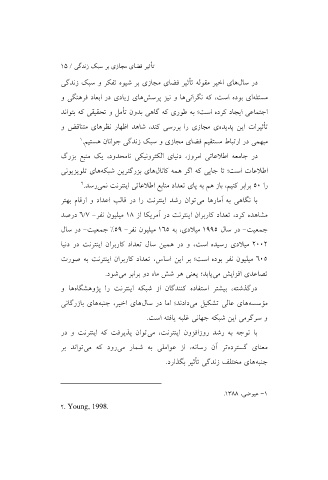 تأثیر فضای مجازی بر سبک زندگی / ۱۵
در سال‌های اخیر مقوله تأثیر فضای مجازی بر شیوه تفکر و سبک زندگی
مسئله‌ای بوده است، که نگرانی‌ها و نیز پرسش‌های زیادی در ابعاد فرهنگی و
اجتماعی ایجاد کرده است؛ به طوری که گاهی بدون تأمل و تحقیقی که بتواند
تأثیرات این پدیده‌ی مجازی را بررسی کند، شاهد اظهار نظرهای متناقض و
مبهمی در ارتباط مستقیم فضای مجازی و سبک زندگی جوانان هستیم.۱
در جامعه اطلاعاتی امروز، دنیای الکترونیکی نامحدود، یک منبع بزرگ
اطلاعات است؛ تا جایی که اگر همه کانال‌های بزرگترین شبکه‌های تلویزیونی
را ۵۰ برابر کنیم، باز هم به پای تعداد منابع اطلاعاتی اینترنت نمی‌رسد.۲
با نگاهی به آمارها می‌توان رشد اینترنت را در قالب اعداد و ارقام بهتر
مشاهده کرد. تعداد کاربران اینترنت در آمریکا از ۱۸ میلیون نفر- ۶/۷ درصد
جمعیت- در سال ۱۹۹۵ میلادی، به ۱۶۵ میلیون نفر- ۵۹٪ جمعیت- در سال
۲۰۰۲ میلادی رسیده است، و در همین سال تعداد کاربران اینترنت در دنیا
۶۰۵ میلیون نفر بوده است؛ بر این اساس، تعداد کاربران اینترنت به صورت
تصاعدی افزایش می‌یابد؛ یعنی هر شش ماه دو برابر می‌شود.
درگذشته، بیشتر استفاده کنندگان از شبکه اینترنت را پژوهشگاه‌ها و
مؤسسه‌های عالی تشکیل می‌دادند؛ اما در سال‌های اخیر، جنبه‌های بازرگانی
و سرگرمی این شبکه جهانی غلبه یافته است.
با توجه به رشد روزافزون اینترنت، می‌توان پذیرفت که اینترنت و در
معنای گسترده‌تر آن رسانه، از عواملی به شمار می‌رود که می‌تواند بر
جنبه‌های مختلف زندگی تأثیر بگذارد.
۱- عیوضی، ۱۳۸۸.
۲. Young, 1998.